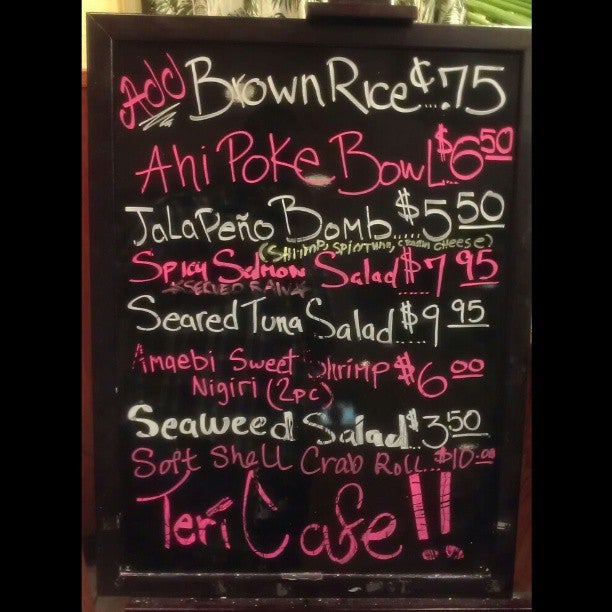 Add Brown Rice ¢.75
Ahi Poke Bowl...$6.50
Jalapeño Bomb.....$5.50
(Shrimp, Spicy tuna, cream cheese)
Spicy Salmon Salad $7.95
*Served Raw*
Seared Tuna Salad $9.95
Amaebi Sweet Shrimp $6.00
Nigiri (2pc)
Seaweed Salad $3.50
Soft Shell Crab Roll...$10.00
Teri Cafe!!